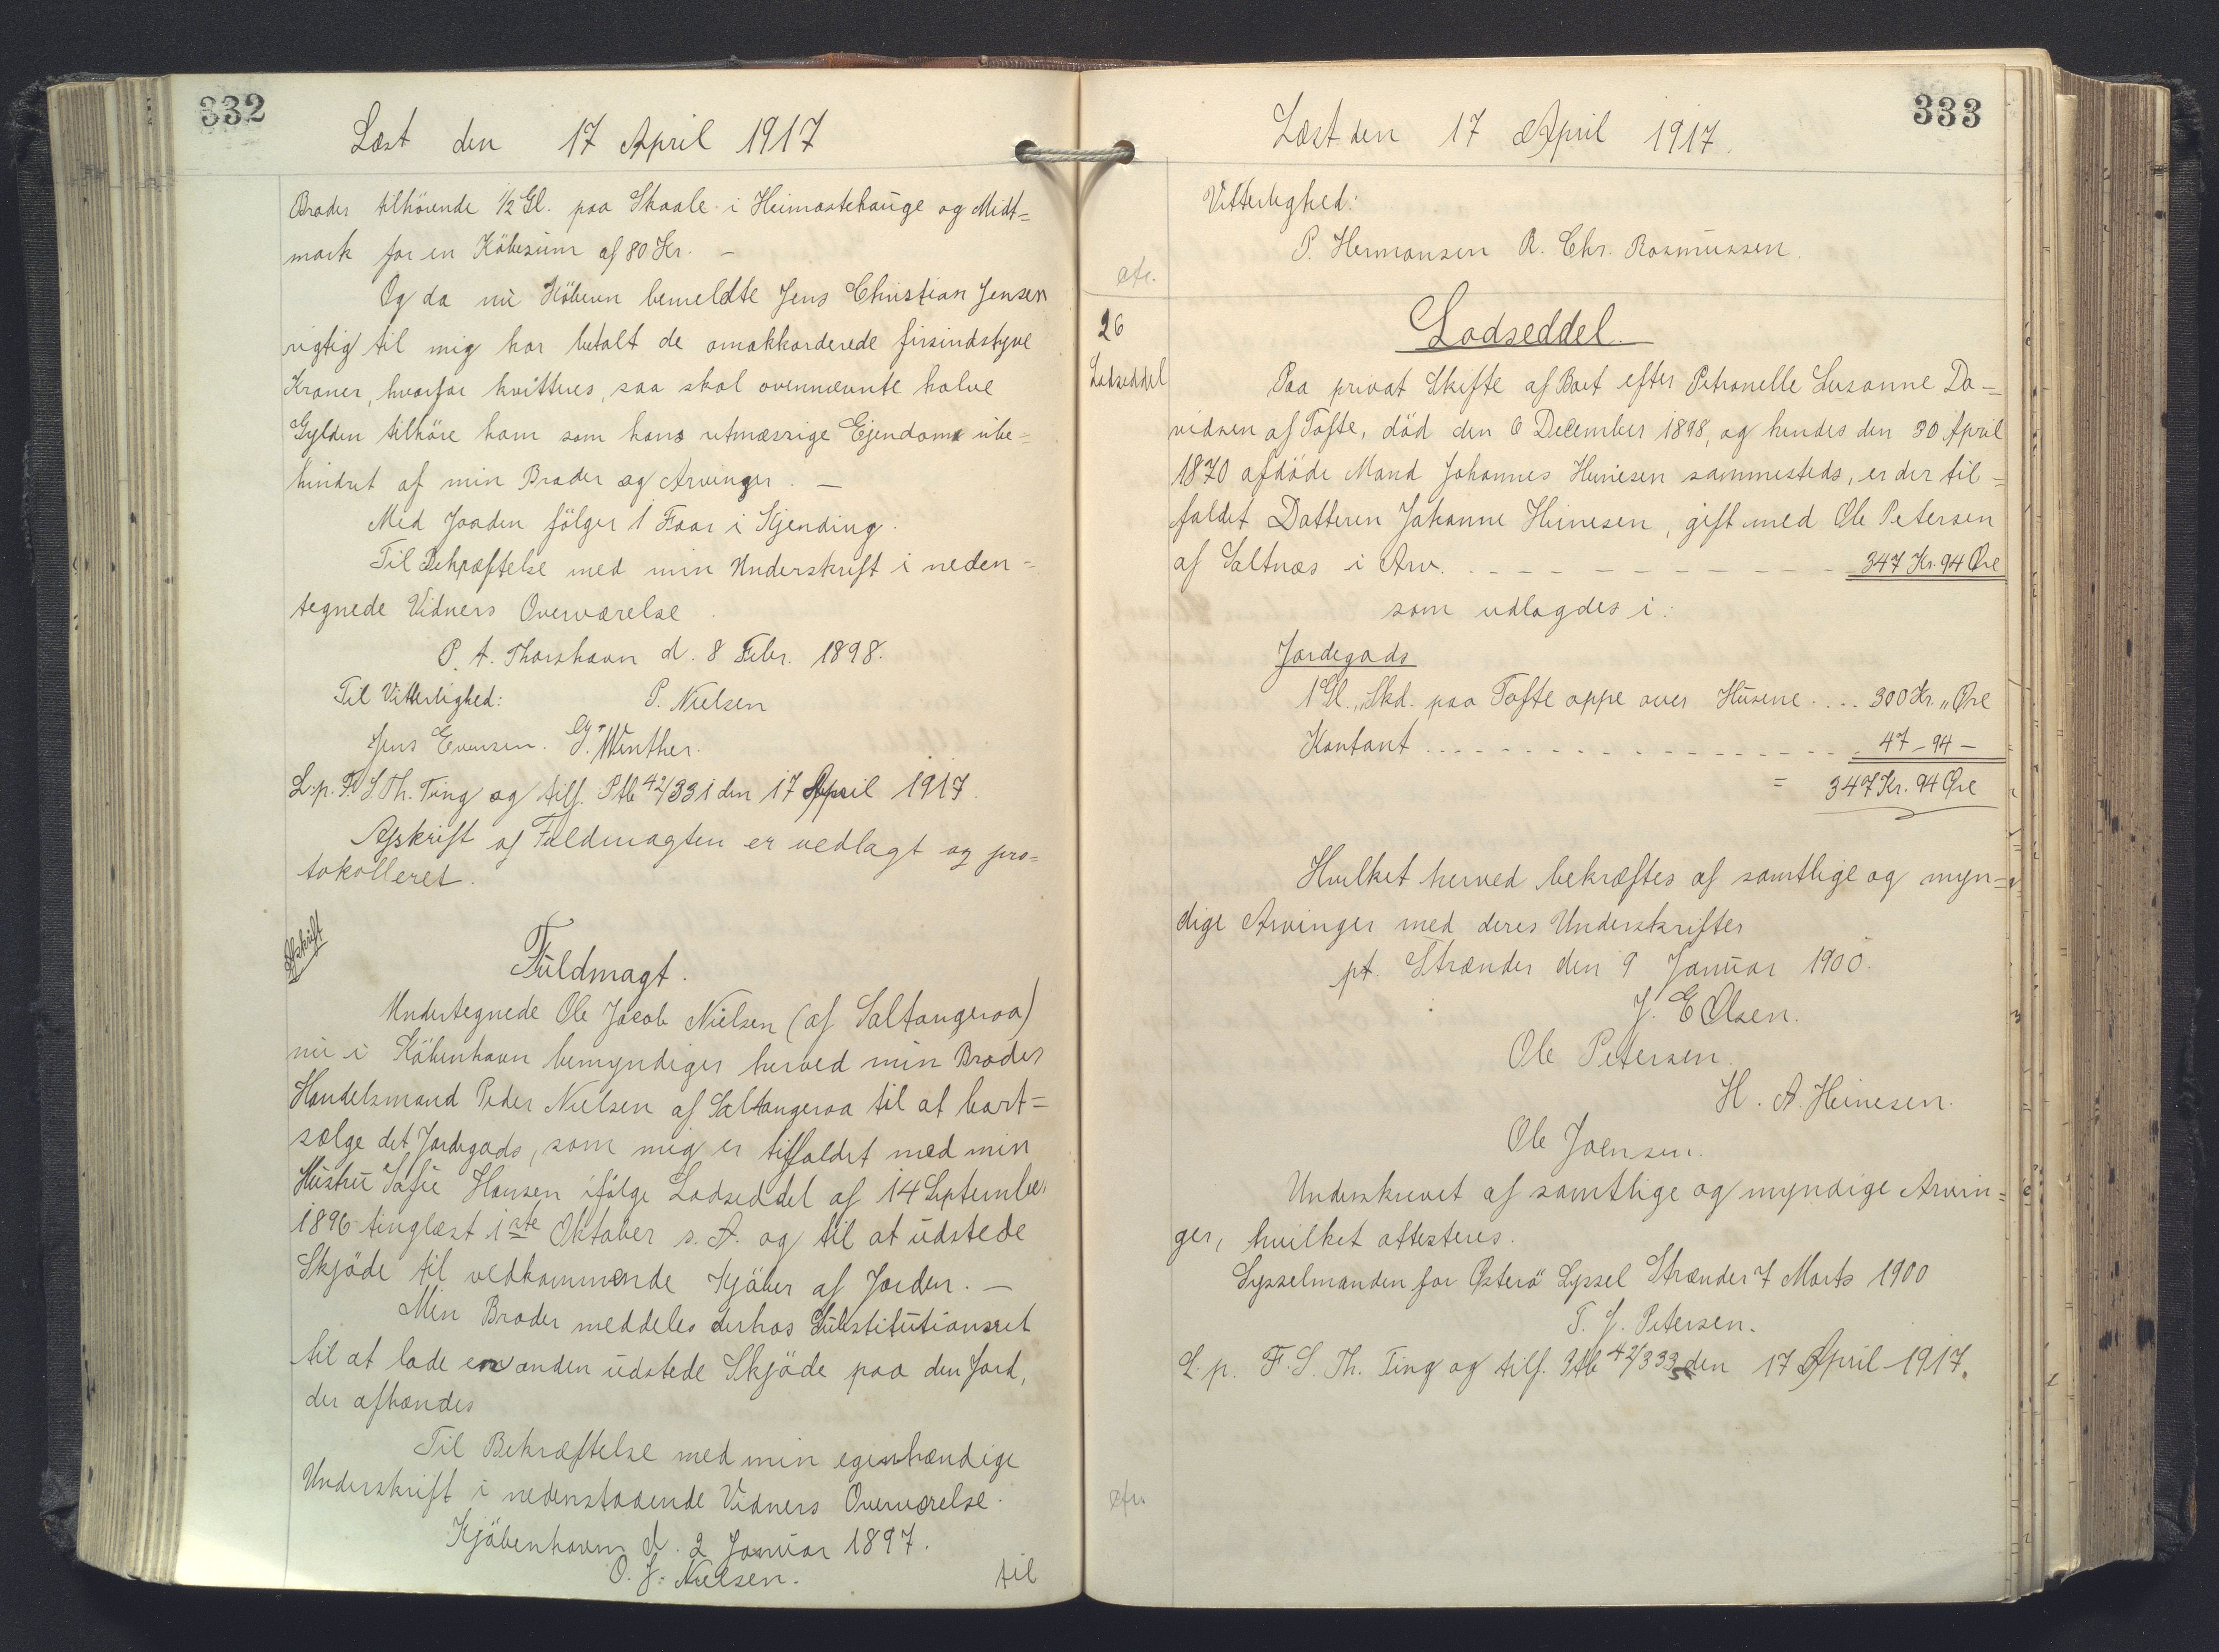 332
Læst den 17 April 1917
Broder tilhörende 1/2 Gl. paa Skaale i Heimastehauge og Midt=
mark for en Köbesum af 80 Kr. –
Og da nu Köberen bemeldte Jens Christian Jensen
rigtig til mig har betalt de omakkorderede firsindstyve
Kroner, hvorfor kvitteres, saa skal ovennævnte halve
Gylden tilhöre ham som hans retmæssige Ejendom ube=
hindret af min Broder og Arvinger. –
Med Jorden fölger 1 Faar i Kjending.
Til Bekræftelse med min Underskrift i neden=
tegnede Vidners Overværelse.
P. t. Thorshavn d. 8 Febr. 1898.
Til Vitterlighed: P. Nielsen
Jens Evensen. J. Winther.
L. p. F. S. Th. Ting og tilf. Ptb 42/331 den 17 April 1917.
Afskrift af Fuldmagten er vedlagt og pro=
tokolleret.
Afskrift
Fuldmagt.
Undertegnede Ole Jacob Nielsen (af Saltangeraa)
nu i Köbenhavn bemyndiger herved min Broder
Handelsmand Peder Nielsen af Saltangeraa til at bort=
sælge det Jordegods, som mig er tilfaldet med min
Hustru Sofie Hansen ifölge Lodseddel af 14 September
1896 tinglæst 1ste Oktober s. A. og til at udstede
Skjöde til vedkommende Kjöber af Jorden. –
Min Broder meddeles derhos Substitutionsret
til at lade en anden udstede Skjöde paa den Jord,
der afhændes
Til Bekræftelse med min egenhændige
Underskrift i nedenstaaende Vidners Overværelse.
Kjöbenhavn d. 2 Januar 1897.
O. J. Nielsen.
til
333
Læst den 17 April 1917.
Vitterlighed:
P. Hermansen R. Chr. Rasmussen.
26
Lodseddel
Lodseddel.
Paa privat Skifte af Boet efter Petronelle Susanne Da=
vidsen af Tofte, död den 6 December 1898, og hendes den 30 April
1870 afdöde Mand Johannes Heinesen sammesteds, er der til=
faldet Datteren Johanne Heinesen, gift med Ole Petersen
af Saltnæs i Arv. 347 Kr. 94 Øre
som udlagdes i:
Jordegods
1 Gl. „ Skd. paa Tofte oppe over Husene .... 300 Kr. „ Øre
Kontant 47 – 94 –
= 347 Kr. 94 Øre
Hvilket herved bekræftes af samtlige og myn=
dige Arvinger med deres Underskrifter
pt. Strænder den 9 Januar 1900.
J. E Olsen.
Ole Petersen.
H. A. Heinesen.
Ole Joensen.
Underskrevet af samtlige og myndige Arvin=
ger, hvilket attesteres.
Sysselmanden for Østerö Syssel Strænder 7 Marts 1900
T. J. Petersen.
L. p. F. S. Th. Ting og tilf. Ptb 42/333 den 17 April 1917.